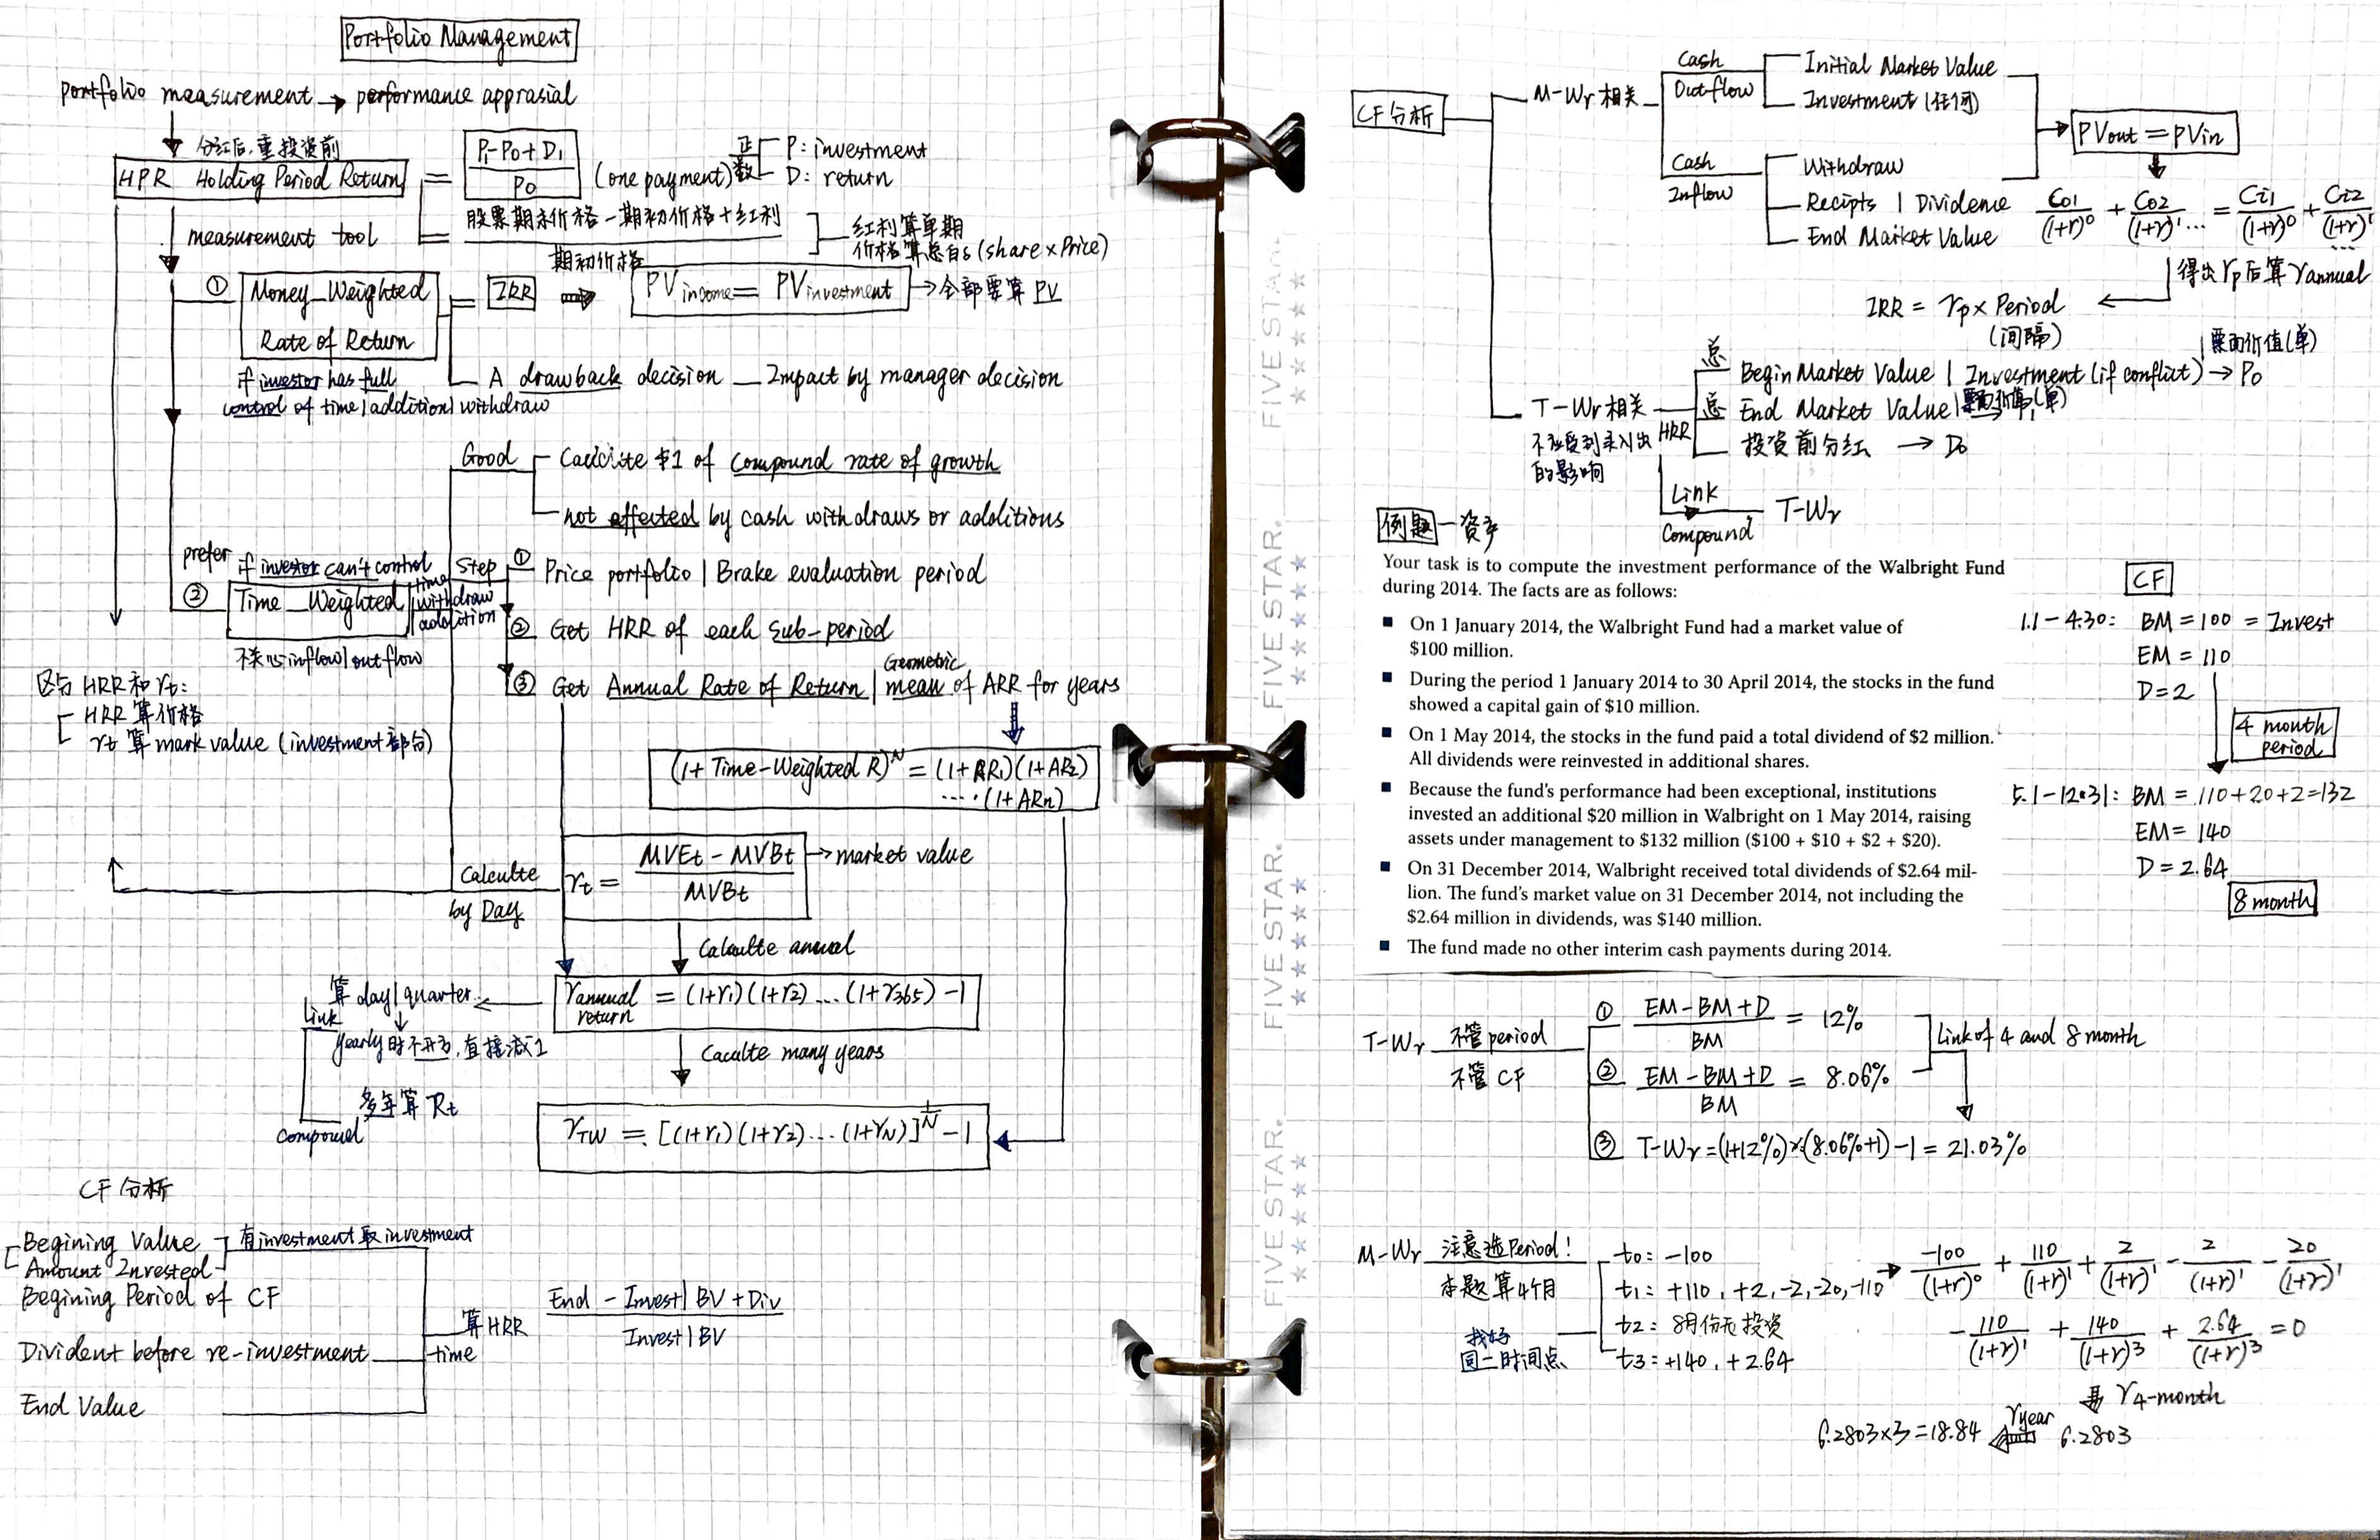 Portfolio Management
portfolio measurement → performance apprasial
分红后,重投资前
HPR Holding Period Return = P₁-P₀+D₁ / P₀ (one payment) 正数
P: investment
D: return
= 股票期末价格-期初价格+红利 / 期初价格
红利算单期
价格算总自s (share×Price)
measurement tool
① Money_Weighted Rate of Return = IRR ⇒ PV income = PV investment → 全部要算 PV
if investor has full
control of time|addition|withdraw
A drawback decision — Impact by manager decision
Good
Caclclite $1 of compound rate of growth
not affected by cash withdraws or additions
prefer if investor can't control time withdraw addition
② Time_Weighted
不关心inflow|outflow
Step
① Price portfolio | Brake evaluation period
② Get HRR of each sub-period
③ Get Annual Rate of Return | Geometric mean of ARR for years
区与 HRR和 rt:
HRR 算价格
rt 算 mark value (investment部台)
(1+Time-Weighted R)ᴺ = (1+AR₁)(1+AR₂)
....(1+ARn)
Calculte by Day
rt = MVEt - MVBt / MVBt → market value
Calculte annual
r annual return = (1+r₁)(1+r₂)...(1+r365) -1
算 day|quarter
Link
yearly时不开方,直接减1
Caculte many years
多年算 Rt
compound
rTW = [(1+r₁)(1+r₂)...(1+rN)]^1/N -1
CF 分析
Begining Value
Amount Invested
有investment取investment
Begining Period of CF
Divident before re-investment
End Value
算HRR
time
End - Invest|BV + Div / Invest|BV
CF分析
M-Wr相关
Cash Outflow
Initial Market Value
Investment (任何)
Cash Inflow
Withdraw
Recipts | Dividene
End Market Value
PVout = PVin
Co1/(1+r)⁰ + Co2/(1+r)¹ ... = Ci1/(1+r)⁰ + Ci2/(1+r)¹ ...
得出 rp后算 r annual
IRR = rp × Period
(间隔)
T-Wr相关
不应受到流入出
的影响
HRR
票面价值(单)
总 Begin Market Value | Investment (if conflict) → P₀
总 End Market Value | (单)
投资前分红 → D₀
Link Compound T-Wr
例题 一资产
Your task is to compute the investment performance of the Walbright Fund
during 2014. The facts are as follows:
■ On 1 January 2014, the Walbright Fund had a market value of
$100 million.
■ During the period 1 January 2014 to 30 April 2014, the stocks in the fund
showed a capital gain of $10 million.
■ On 1 May 2014, the stocks in the fund paid a total dividend of $2 million.
All dividends were reinvested in additional shares.
■ Because the fund's performance had been exceptional, institutions
invested an additional $20 million in Walbright on 1 May 2014, raising
assets under management to $132 million ($100 + $10 + $2 + $20).
■ On 31 December 2014, Walbright received total dividends of $2.64 mil-
lion. The fund's market value on 31 December 2014, not including the
$2.64 million in dividends, was $140 million.
■ The fund made no other interim cash payments during 2014.
CF
1.1-4.30: BM = 100 = Invest
EM = 110
D = 2
4 month
period
5.1-12.31: BM = 110+20+2=132
EM = 140
D = 2.64
8 month
T-Wr 不管period
不管 CF
① EM-BM+D / BM = 12%
② EM-BM+D / BM = 8.06%
Link of 4 and 8 month
③ T-Wr = (1+12%)×(8.06%+1)-1 = 21.03%
M-Wr 注意选Period!
本题算4个月
找好
同一时间点
t0: -100
t1: +110, +2, -2, -20, -110
t2: 8月份无投资
t3: +140, +2.64
-100/(1+r)⁰ + 110/(1+r)¹ + 2/(1+r)¹ - 2/(1+r)¹ - 20/(1+r)¹
- 110/(1+r)¹ + 140/(1+r)³ + 2.64/(1+r)³ = 0
r4-month
6.2803×3=18.84 ryear 6.2803
FIVE STAR.
FIVE STAR.
FIVE STAR.
FIVE STAR.